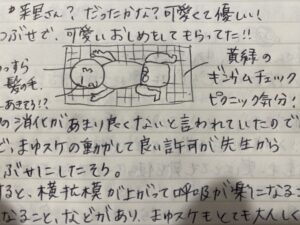 采里さん？だったかな？可愛くて優しい！
つぶせで、可愛いおしめもしてもらってた!!
うっすら
髪の毛、
あきそう!?
黄緑の
ギンガムチェック
ピクニック気分！
の消化があまり良くないと言われていたので
ど、まゆスケの動かして良い許可が先生から
ぶせにしたそう。
すると、横拡模が上がって呼吸が楽になるこ
なること、などがあり、まゆスケもとても大人しく